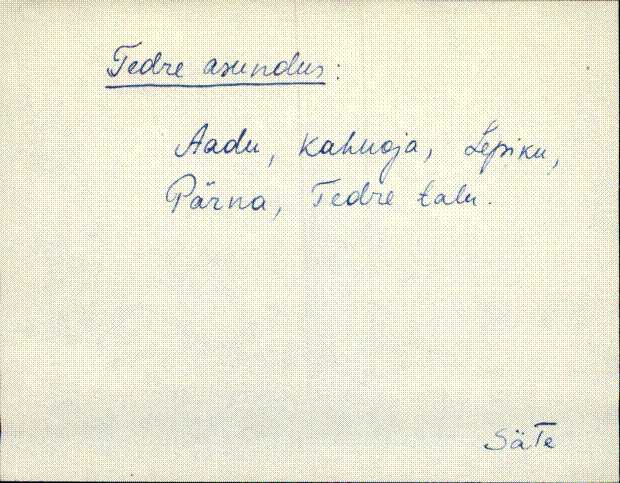 Tedre asundus:
Aadu, Kahuoja, Lepiku,
Pärna, Tedre talu.
SäTe